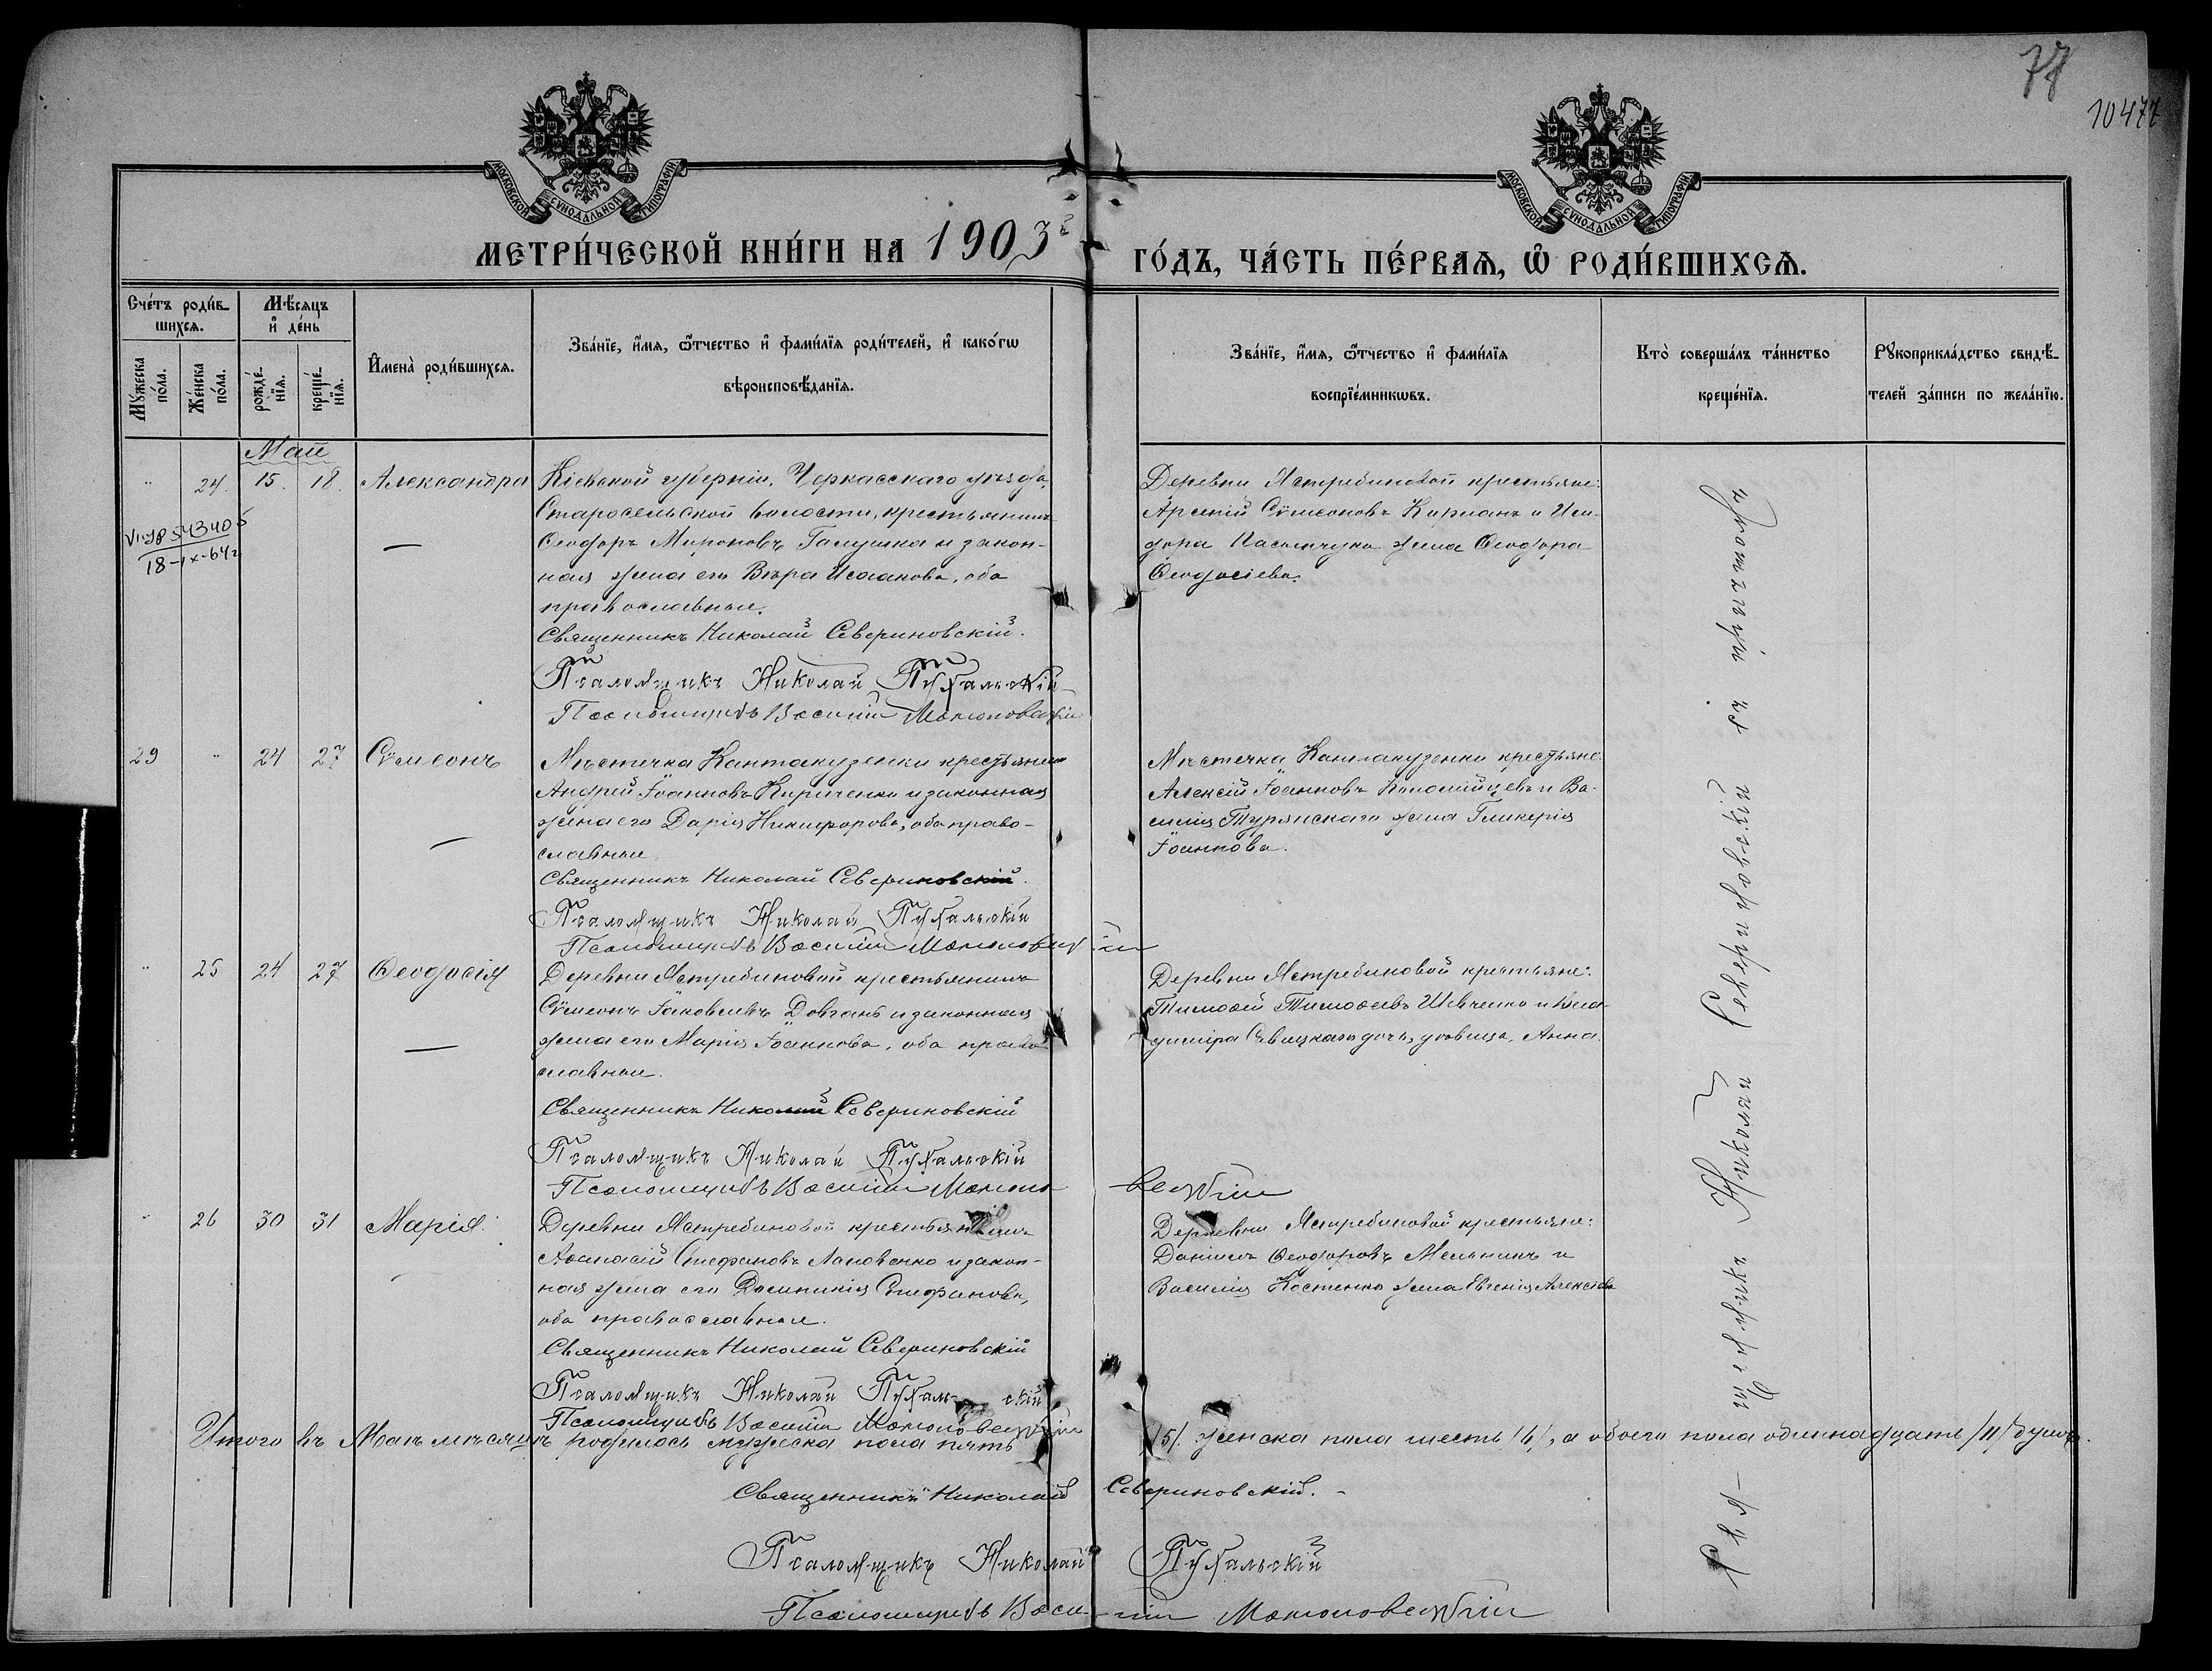 77
10477
МОСКОВСКОЙ СѴНОДАЛЬНОЙ ТИПОГРАФІИ
МОСКОВСКОЙ СѴНОДАЛЬНОЙ ТИПОГРАФІИ
МЕТРИ́ЧЕСКОЙ КНИ́ГИ НА 1903 ГО́ДЪ, ЧА́СТЬ ПЕ́РВАѦ, Ѽ РОДИ́ВШИХСѦ.
Сче́тъ роди́вшихсѧ.
Мꙋ́жеска по́ла.
Же́нска по́ла.
Мѣ́сѧцъ и҆ де́нь
рожде́нїѧ.
креще́нїѧ.
И҆мена̀ роди́вшихсѧ.
Зва́нїе, и҆́мѧ, ѻ҆́тчество и҆ фами́лїѧ роди́телей, и҆ како́гѡ вѣроисповѣ́данїѧ.
Зва́нїе, и҆́мѧ, ѻ҆́тчество и҆ фами́лїѧ воспрїе́мникѡвъ.
Кто̀ соверша́лъ та́инство креще́нїѧ.
Рꙋкоприкла́дство свидѣ́телей за́писи по жела́нїю.
Май
" 24. 15. 18. Александра
Кіевской губерніи, Черкасскаго уѣзда,
Старосельской волости, крестьянинъ
Ѳеодоръ Мироновъ Галушка и закон-
ная жена его Вѣра Исаакова, оба
православные.
Священникъ Николай Севериновскій.
Псаломщикъ Николай Пухальскій
Псаломщикъ Василій
Деревни Ястребиновой крестьяне:
Арсеній Сѵмеоновъ Корпанъ и Иси-
дора жена Ѳеодора
Ѳеодосіева.
543405
18-IX-64г
29 " 24 27 Сѵмеонъ
Мѣстечка Кантакузенки крестьянинъ
Андрей Іоанновъ Кириченко и законная
жена его Дарія Никифорова, оба право-
славные.
Священникъ Николай Севериновскій.
Псаломщикъ Николай Пухальскій
Псаломщикъ Василій
Мѣстечка Кантакузенки крестьяне:
Алексій Іоанновъ Коломійцевъ и Ва-
силія Турянскаго жена Гликерія
Іоаннова.
" 25 24 27 Ѳеодосія
Деревни Ястребиновой крестьянинъ
Сѵмеонъ Іаковлевъ Довгань и законная
жена его Марія Іоаннова, оба право-
славные.
Священникъ Николай Севериновскій
Псаломщикъ Николай Пухальскій
Псаломщикъ Василій
Деревни Ястребиновой крестьяне:
Тимоѳей Тимоѳеевъ Шевченко и Вла-
диміра дочь, дѣвица, Анна.
" 26 30 31 Марія
Деревни Ястребиновой крестьянинъ
Аѳанасій Стефановъ Лановенко и закон-
ная жена его Домникія Стефанова,
оба православные.
Священникъ Николай Севериновскій
Псаломщикъ Николай Пухальскій
Псаломщикъ Василій
Деревни Ястребиновой крестьяне:
Даніилъ Ѳеодоровъ Мельникъ и
Василія Костенко жена Евгенія Алексіева
Священникъ Николай Севериновскій съ причтомъ
Итого въ Маѣ мѣсяцѣ родилось мужеска пола пять /5/. женска пола шесть /6/, а обоего пола одиннадцать /11/ душъ.
Священникъ Николай Севериновскій.
Псаломщикъ Николай Пухальскій
Псаломщикъ Василій